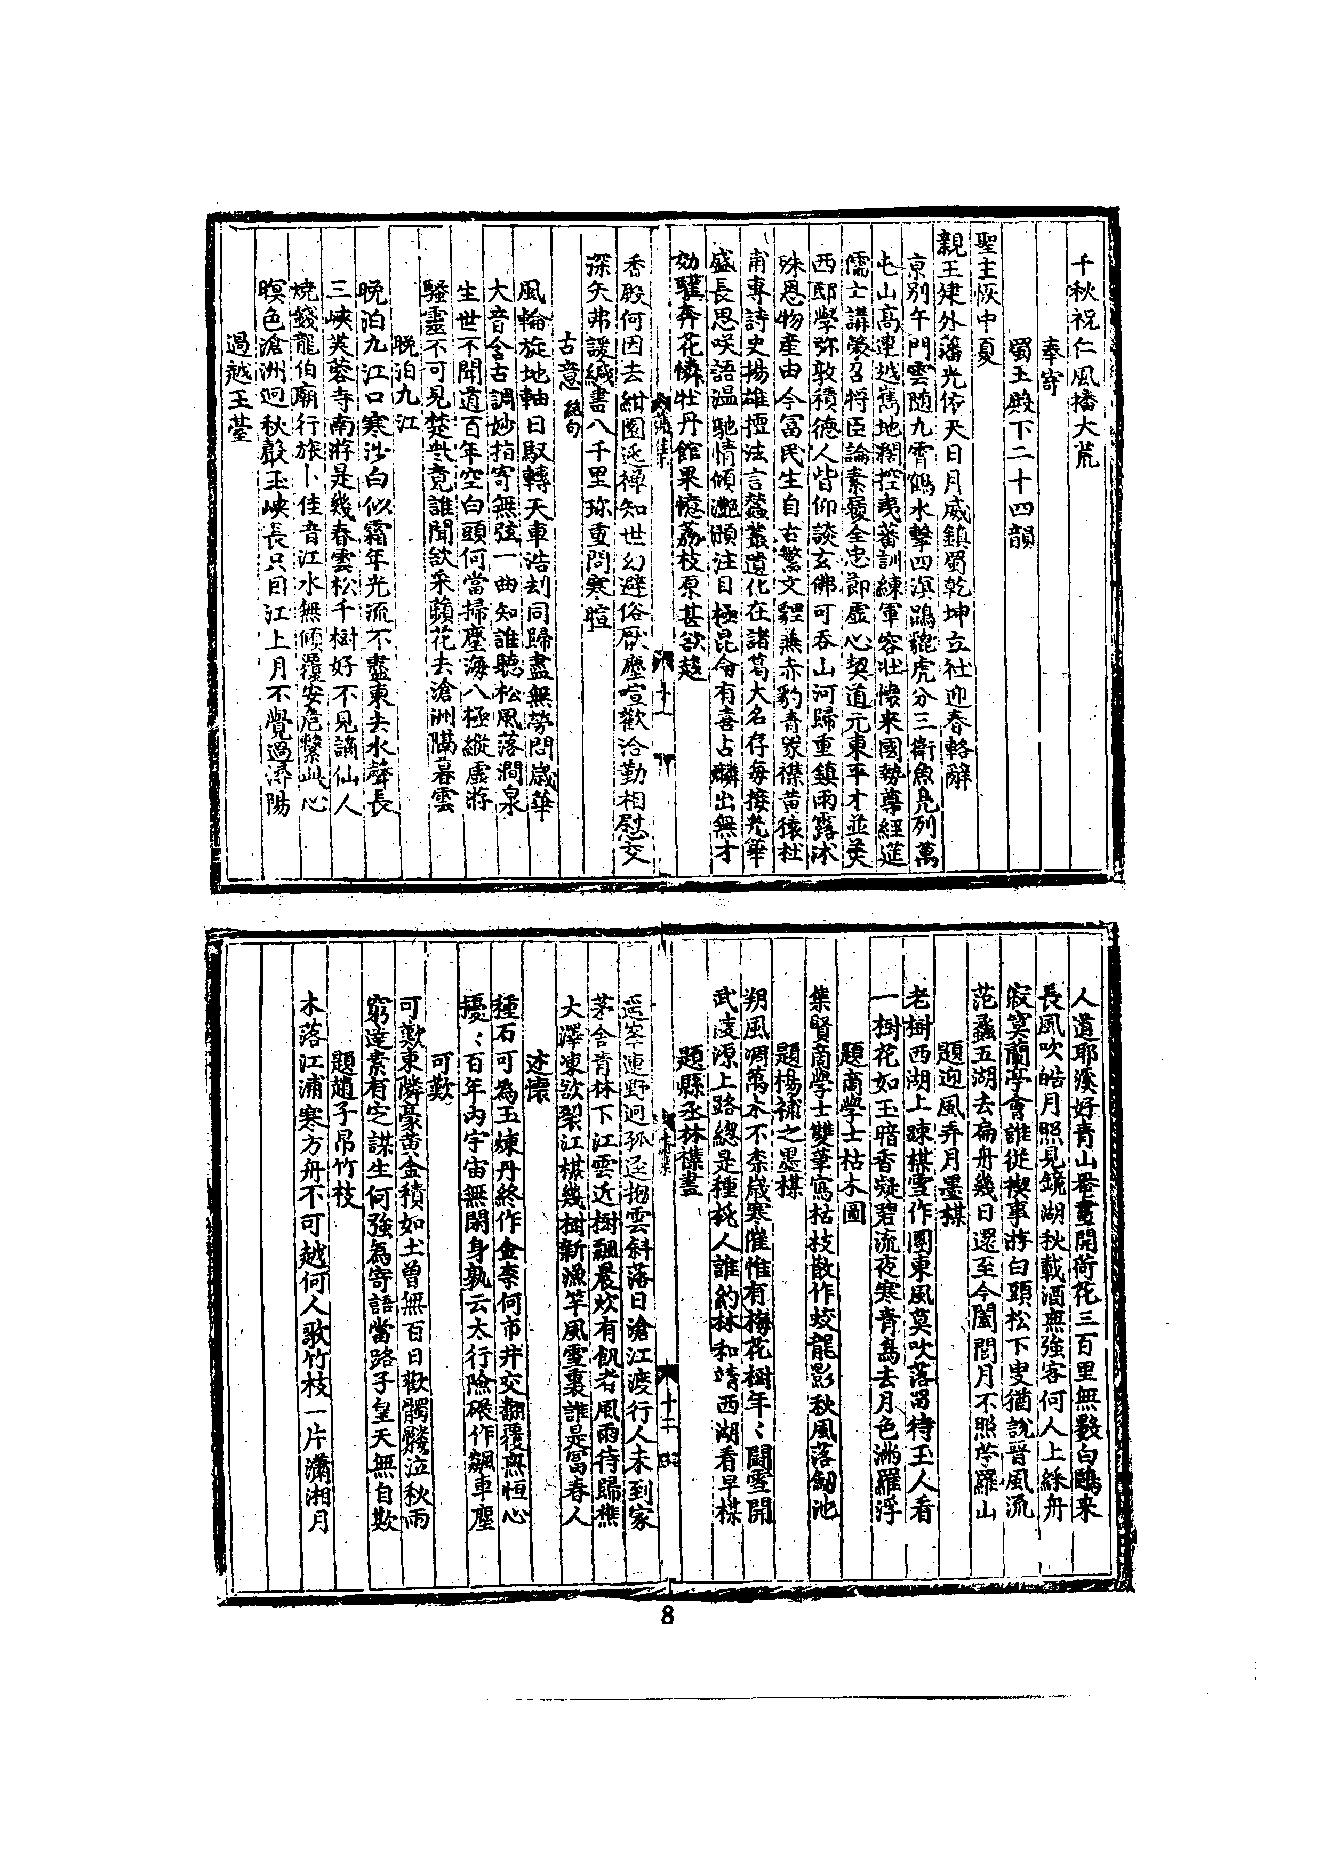 千秋祝仁風播大荒
奉寄
蜀王殿下二十四韻
聖主恢中夏
親王建外藩光依天日月威鎮蜀乾坤立社迎春輅辭
京別午門雲随九霄鶴水擊四溟鵾貔虎分三衛魚鳧列萬
屯山髙連越嶲地濶控夷蕃訓練軍容壯懷来國勢尊經筵
儒士講榮召將臣論素履全忠節虚心契道元東平才並美
西邸學弥敦積德人皆仰談玄佛可吞山河歸重鎮雨露沐
殊恩物産由今富民生自古繁文貍兼赤豹青豢襍黄猿杜
甫專詩史揚雄擅法言蠶叢遺化在諸葛大名存每接光華
盛長思咲語温馳情傾灔澦注目極昆侖有喜占麟出無才
効驥奔花憐牡丹館果憶荔枝原甚欲趍
香殿何因去紺園逃禪知世幻避俗厭塵喧歡洽勤相慰交
深矢弗諼緘書八千里珎重問寒暄
古意 絶句
風輪旋地軸日馭轉天車浩刼同歸盡無勞問歲華
大音含古調妙指寄無弦一曲知誰聽松風落澗泉
生世不聞道百年空白頭何當掃塵海八極縱虚游
騷靈不可見楚些竟誰聞欲采蘋花去滄洲隔暮雲
晩泊九江
晩泊九江口寒沙白似霜年光流不盡東去水聲長
三峽芙蓉寺南游是幾春雲松千樹好不見謫仙人
燒錢龍伯廟行旅卜佳音江水無傾覆安危繫此心
暝色滄洲迥秋聲玉峽長只因江上月不覺過潯陽
過越王臺
十一
人道耶溪好青山罨畫開荷花三百里無數白鷗来
長風吹皓月照見鏡湖秋載酒無強客何人上綵舟
寂寞蘭亭會誰從稧事游白頭松下叟猶說晉風流
范蠡五湖去扁舟幾日還至今閶闔月不照苧羅山
題迎風弄月墨楳
老樹西湖上踈楳雪作團東風莫吹落留待玉人看
一樹花如玉暗香凝碧流夜寒青鳥去月色滿羅浮
題商學士枯木圖
集賢商學士雙華寫枯枝散作蛟龍影秋風落劒池
題楊補之墨楳
朔風凋萬木不柰歲寒催惟有梅花樹年〻鬪雪開
武凌源上路總是種桃人誰約林和靖西湖看早楳
題縣丞林襍畫
遥峯連野迥孤逕抝雲斜落日滄江渡行人未到家
茅舍青林下江雲近樹飄晨炊有飢者風雨待歸樵
大澤凍欲裂江楳幾樹新漁竿風雪裏誰是富春人
述懷
種石可為玉煉丹終作金柰何市井交翻覆無恒心
擾〻百年内宇宙無閑身孰云太行險碾作飆車塵
可歎
可歎東隣豪黄金積如土曽無百日歡髑髏泣秋雨
窮達素有定謀生何強為寄語當路子皇天無自欺
題趙子昂竹枝
木落江浦寒方舟不可越何人歌竹枝一片瀟湘月
十二
8